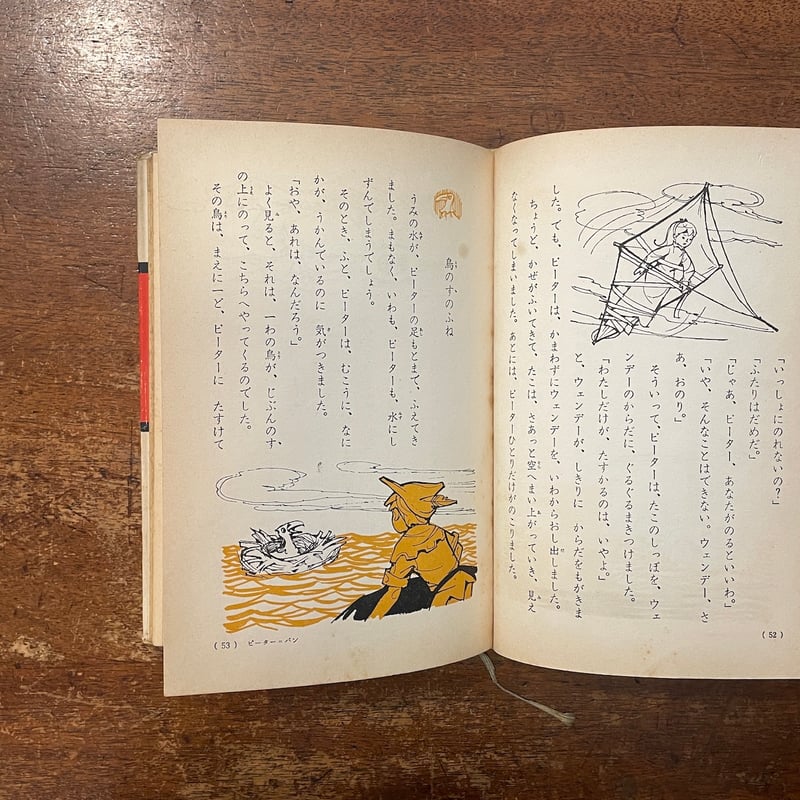 「いっしょにのれないの？」
「ふたりはだめだ。」
「じゃあ、ピーター、あなたがのるといいわ。」
「いや、そんなことはできない。ウェンデー、さ
あ、おのり。」
そういって、ピーターは、たこのしっぽを、ウェ
ンデーのからだに、ぐるぐるまきつけました。
「わたしだけが、たすかるのは、いやよ。」
と、ウェンデーが、しきりに からだをもがきま
した。でも、ピーターは、かまわずにウェンデーを、いわからおし出しました。
ちょうど、かぜがふいてきて、たこは、さあっと空へまい上がっていき、見え
なくなってしまいました。あとには、ピーターひとりだけがのこりました。
(52)
鳥のすのふね
うみの水が、ピーターの足もとまで、ふえてき
ました。まもなく、いわも、ピーターも、水にし
ずんでしまうでしょう。
そのとき、ふと、ピーターは、むこうに、なに
かが、うかんでいるのに 気がつきました。
「おや、あれは、なんだろう。」
よく見ると、それは、一わの鳥が、じぶんのす
の上にのって、こちらへやってくるのでした。
その鳥は、まえに一ど、ピーターに たすけて
(53) ピーター=パン